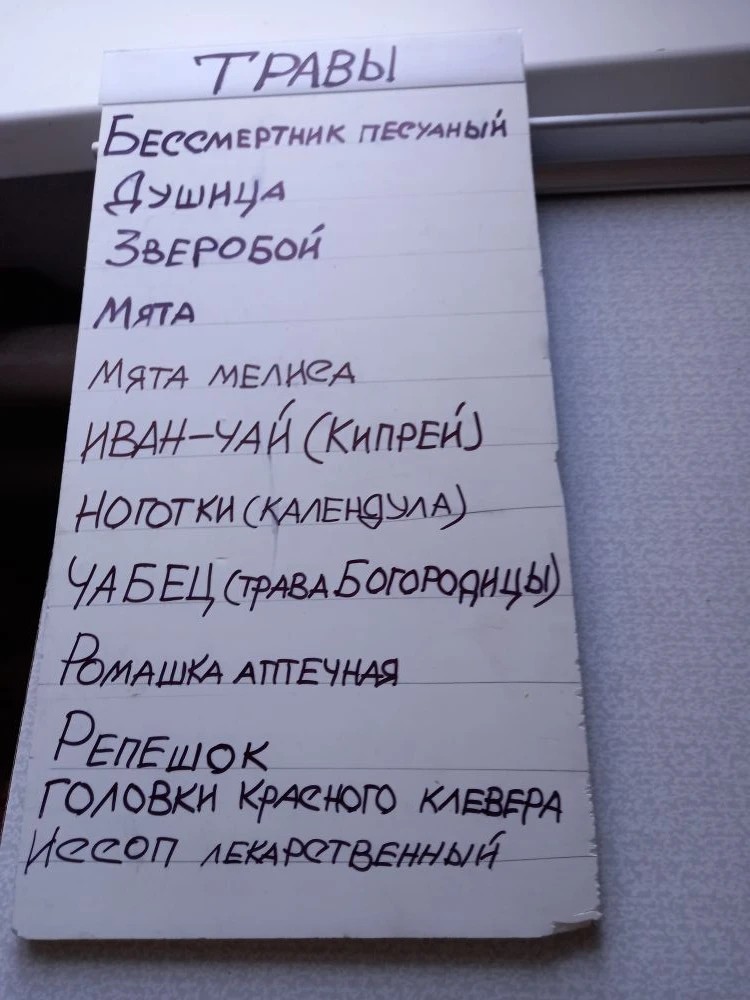 ТРАВЫ
БЕССМЕРТНИК ПЕСУАНЫЙ
ДУШИЦА
ЗВЕРОБОЙ
МЯТА
МЯТА МЕЛИСА
ИВАН-ЧАЙ (КИПРЕЙ)
НОГОТКИ (КАЛЕНДУЛА)
ЧАБЕЦ (ТРАВА БОГОРОДИЦЫ)
РОМАШКА АПТЕЧНАЯ
РЕПЕШОК
ГОЛОВКИ КРАСНОГО КЛЕВЕРА
ИССОП ЛЕКАРСТВЕННЫЙ